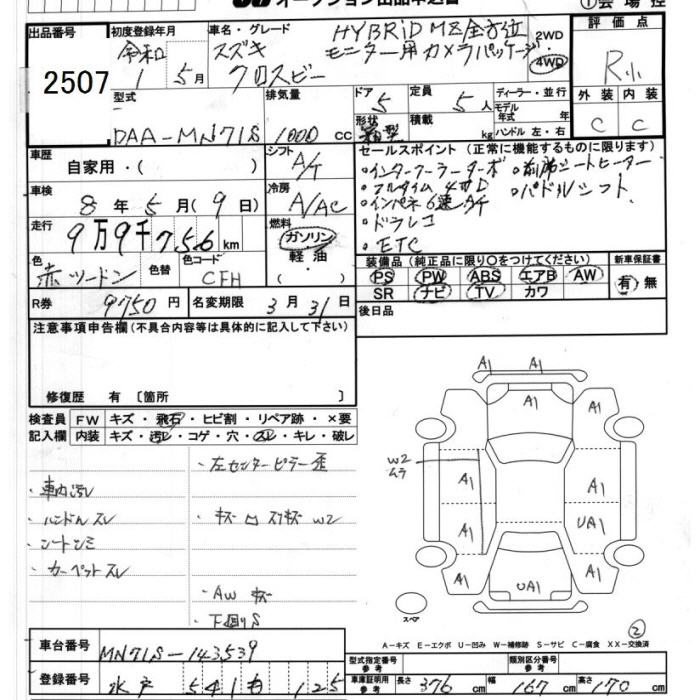 オークション出品申込書
①会場控
出品番号
2507
初度登録年月
令和
1 5月
車名・グレード
スズキ
クロスビー
HYBRiD MZ 全方位
モニター用カメラパッケージ
2WD
4WD
評価点
R小
外装 内装
C C
型式
DAA-MN71S
排気量
1000 cc
ドア
5
形状
箱型
定員
5人
積載
kg
ディーラー・並行
モデル
年式 年
ハンドル 左・右
車歴
自家用・( )
シフト
A/T
車検
8年5月(9日)
冷房
A/AC
走行
9万9千756km
燃料
ガソリン
軽油
・( )
色
赤ツートン
色替
色コード
CFH
R券
9750円
名変期限
3月31日
セールスポイント (正常に機能するものに限ります)
・インタークーラーターボ ・前席シートヒーター
・フルタイム4WD ・パドルシフト
・インパネ6速A/T
・ドラレコ
・ETC
装備品 (純正品に限り○をつけてください)
PS PW ABS エアB AW
SR ナビ TV カワ
新車保証書
有・無
後日品
注意事項申告欄 (不具合内容等は具体的に記入して下さい)
修復歴 有 [箇所 ]
検査員
記入欄
FW キズ・飛石・ヒビ割・リペア跡・×要
内装 キズ・汚レ・コゲ・穴・スレ・キレ・破レ
・左センターピラー歪
・車内汚レ
・ハンドルスレ
・シートシミ
・カーペットスレ
・AWキズ
・下廻りS
A1 A1
A1 A1 A1
W2
ムラ
A1 A1
A1 UA1
A1 UA1 A1
スペア
②
A−キズ E−エクボ U−凹み W−補修跡 S−サビ C−腐食 XX−交換済
車台番号
MN71S-143539
登録番号
水戸 541 も 125
型式指定番号
参考
類別区分番号
参考
車庫証明用
参考
長さ 376 cm 幅 167 cm 高さ 170 cm